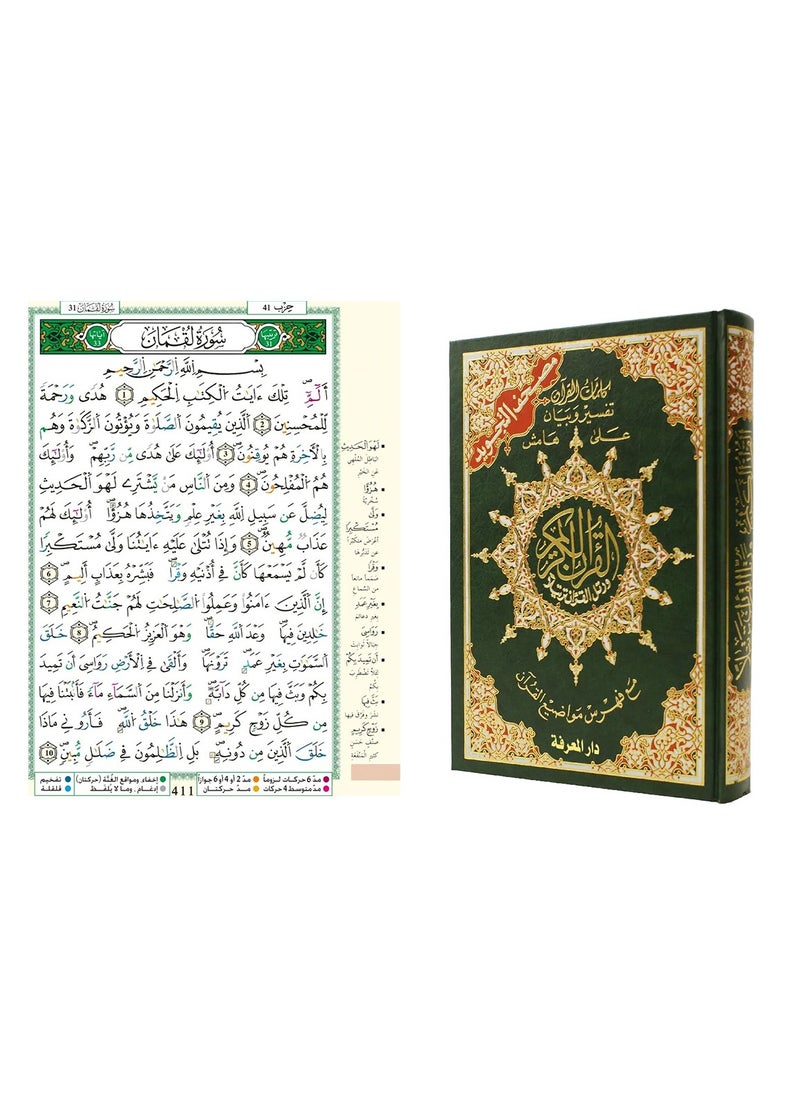 حِزْب 41
سُورَةُ لُقْمَانَ 31
ترتيبها 31
سُورَةُ لُقْمَانَ
آياتها 33
بِسْمِ اِللَّهِ اِلرَّحْمَٰنِ اِلرَّحِيمِ
أَلَٓمِّٓ تِلْكَ ءَايَٰتُ اُلْكِتَٰبِ اِلْحَكِيمِ 1 هُدىٗ وَرَحْمَةٗ
لِّلْمُحْسِنِينَ 2 اَلذِينَ يُقِيمُونَ اَلصَّلَوٰةَ وَيُوتُونَ اَلزَّكَوٰةَ وَهُم
بِالَاخِرَةِ هُمْ يُوقِنُونَ 3 أُوْلَٰٓئِكَ عَلَىٰ هُدىٗ مِّن رَّبِّهِمْ وَأُوْلَٰٓئِكَ
هُمُ اُلْمُفْلِحُونَ 4 وَمِنَ اَلنَّاسِ مَنْ يَّشْتَرِے لَهْوَ اَلْحَدِيثِ
لِيُضِلَّ عَن سَبِيلِ اِللَّهِ بِغَيْرِ عِلْمٖ وَيَتَّخِذُهَا هُزُؤاً اُوْلَٰٓئِكَ لَهُمْ
عَذَابٞ مُّهِينٞ 5 وَإِذَا تُتْلَىٰ عَلَيْهِ ءَايَٰتُنَا وَلَّىٰ مُسْتَكْبِراٗ
كَأَن لَّمْ يَسْمَعْهَا كَأَنَّ فِے أُذْنَيْهِ وَقْراٗ فَبَشِّرْهُ بِعَذَابٍ اَلِيمٍ 6
اِنَّ اَلذِينَ ءَامَنُواْ وَعَمِلُواْ اُلصَّٰلِحَٰتِ لَهُمْ جَنَّٰتُ اُلنَّعِيمِ 7
خَٰلِدِينَ فِيهَا وَعْدَ اَللَّهِ حَقّاٗ وَهُوَ اَلْعَزِيزُ اُلْحَكِيمُ 8 خَلَقَ
اَلسَّمَٰوَٰتِ بِغَيْرِ عَمَدٖ تَرَوْنَهَا وَأَلْقَىٰ فِے اِلَارْضِ رَوَٰسِيَ أَن تَمِيدَ
بِكُمْ وَبَثَّ فِيهَا مِن كُلِّ دَآبَّةٖ وَأَنزَلْنَا مِنَ اَلسَّمَآءِ مَآءٗ فَأَنۢبَتْنَا فِيهَا
مِن كُلِّ زَوْجٖ كَرِيمٍ 9 هَٰذَا خَلْقُ اُللَّهِ فَأَرُونِے مَاذَا
خَلَقَ اَلذِينَ مِن دُونِهِ بَلِ اِلظَّٰلِمُونَ فِے ضَلَٰلٖ مُّبِينٖ 10
• لَهْوَ الْحَدِيثِ
الباطل المُلْهِي
عن الخَيْرِ
• هُزُؤاً
سُخْرِيَّة
• وَلَّى
مُسْتَكْبِراً
أعْرَضَ متكبّراً
عن تَدَبُّرِها
• وَقْراً
صَمَماً مانعاً
من السَّماع
• بِغَيْرِ عَمَدٍ
بغير دعائم
• رَوَاسِيَ
جبالاً ثوابت
• أَن تَمِيدَ بِكُمْ
لئلّا تضطرب
بكم
• بَثَّ فِيهَا
نَشَرَ وفَرَّقَ فيها
• زَوْجٍ كَرِيمٍ
صنْفٍ حَسَنٍ
كثير المَنْفَعَةِ
مدّ 6 حركات لزوماً مدّ 2 أو 4 أو 6 جوازاً
مدّ متوسط 4 حركات مدّ حركتان
411
إخفاء، ومواقع الغُنَّة (حركتان) تفخيم
إدغام، وما لا يُلفَظ قلقلة
مصحف التجويد
كلمات القرآن
تفسير وبيان
على هامش
القرآن الكريم
ورتل القرآن ترتيلا
مع فهرس مواضيع القرآن
دار المعرفة